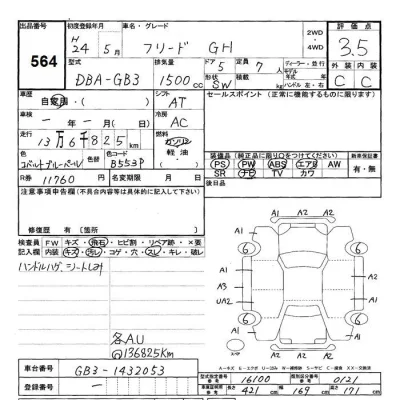 出品番号 564
初度登録年月 H24年5月
車名・グレード フリード GH
2WD・4WD
評価点 3.5
型式 DBA-GB3
排気量 1500cc
ドア 5
定員 7人
形状 SW
積載 kg
ディーラー・並行
モデル年式 年
ハンドル 左・右
外装 内装
C C
車歴 自家用・( )
シフト AT
セールスポイント (正常に機能するものに限ります)
車検 ー年ー月
冷房 AC
走行 13万6千825km
燃料 ガソリン・軽油・( )
色 コバルトブルーパール
色替
色コード B553P
装備品 (純正品に限り○をつけてください)
PS PW ABS エアB AW
SR ナビ TV カワ
新車保証書 有・無
R券 11760円
名義変更期限 月 日
後日品
注意事項申告欄 (不具合内容等は正確に記入して下さい)
修復歴 有 [箇所 ]
検査員記入欄
FW キズ・飛石・ヒビ割・リペア跡・×要
内装 キズ・汚レ・コゲ・穴・スレ・キレ・破レ
ハンドルハゲ シートしみ
各AU
@136825Km
A1 A2
6 6
A1 A1
A3 A2
UA2 A2
A1 A1
6 6
A2
スペア
車台番号 GB3-1432053
登録番号 ー
型式指定番号 参考 16100
類別区分番号 参考 0121
長さ 421cm 幅 169cm 高さ 171cm